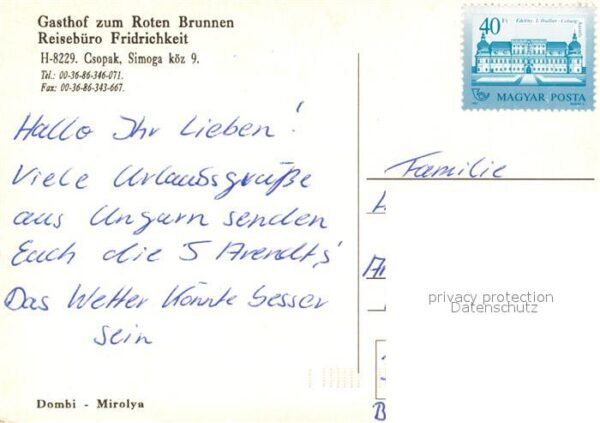 Gasthof zum Roten Brunnen
Reisebüro Fridrichkeit
H-8229. Csopak, Simoga köz 9.
Tel.: 00-36-86-346-071.
Fax: 00-36-86-343-667.
40 Ft
MAGYAR POSTA
Hallo Ihr Lieben!
Viele Urlaubsgrüße
aus Ungarn senden
Euch die 5 Arendt's!
Das Wetter könnte besser
sein
Familie
privacy protection
Datenschutz
Dombi - Mirolya